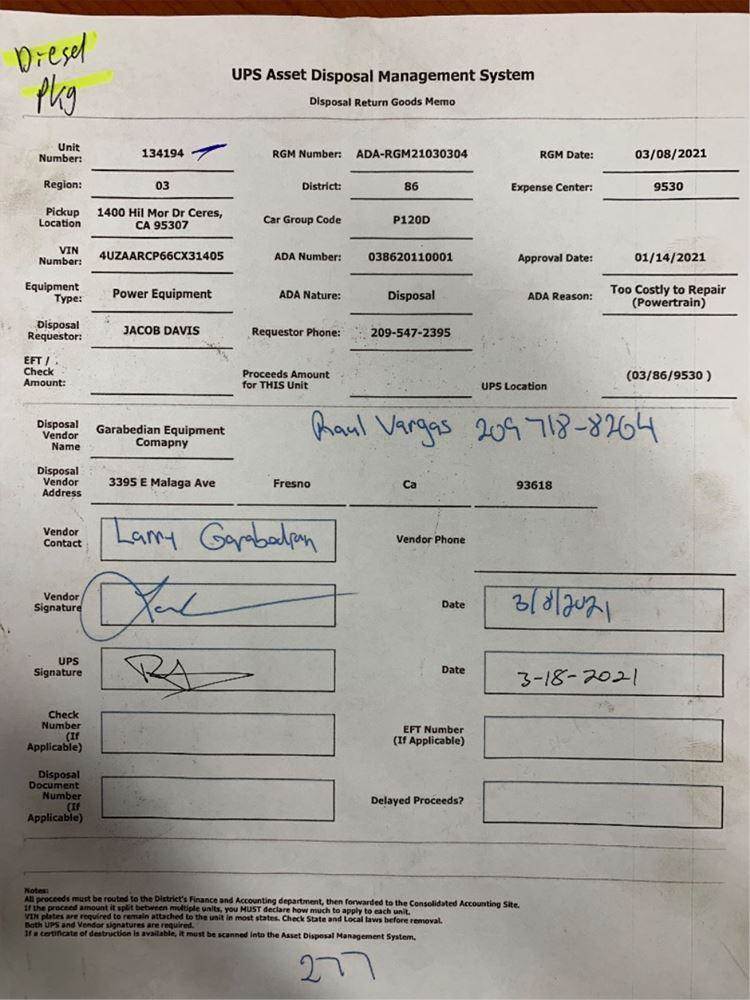 Diesel
Pkg
UPS Asset Disposal Management System
Disposal Return Goods Memo
Unit Number: 134194 RGM Number: ADA-RGM21030304 RGM Date: 03/08/2021
Region: 03 District: 86 Expense Center: 9530
Pickup Location 1400 Hil Mor Dr Ceres, CA 95307 Car Group Code P120D
VIN Number: 4UZAARCP66CX31405 ADA Number: 038620110001 Approval Date: 01/14/2021
Equipment Type: Power Equipment ADA Nature: Disposal ADA Reason: Too Costly to Repair (Powertrain)
Disposal Requestor: JACOB DAVIS Requestor Phone: 209-547-2395
EFT / Check Amount: Proceeds Amount for THIS Unit UPS Location (03/86/9530 )
Disposal Vendor Name Garabedian Equipment Comapny Raul Vargas 209 718-8264
Disposal Vendor Address 3395 E Malaga Ave Fresno Ca 93618
Vendor Contact Larry Garabedian Vendor Phone
Vendor Signature Date 3/8/2021
UPS Signature Date 3-18-2021
Check Number (If Applicable) EFT Number (If Applicable)
Disposal Document Number (If Applicable) Delayed Proceeds?
Notes:
All proceeds must be routed to the District's Finance and Accounting department, then forwarded to the Consolidated Accounting Site.
If the proceed amount it split between multiple units, you MUST declare how much to apply to each unit.
VIN plates are required to remain attached to the unit in most states. Check State and Local laws before removal.
Both UPS and Vendor signatures are required.
If a certificate of destruction is available, it must be scanned into the Asset Disposal Management System.
277